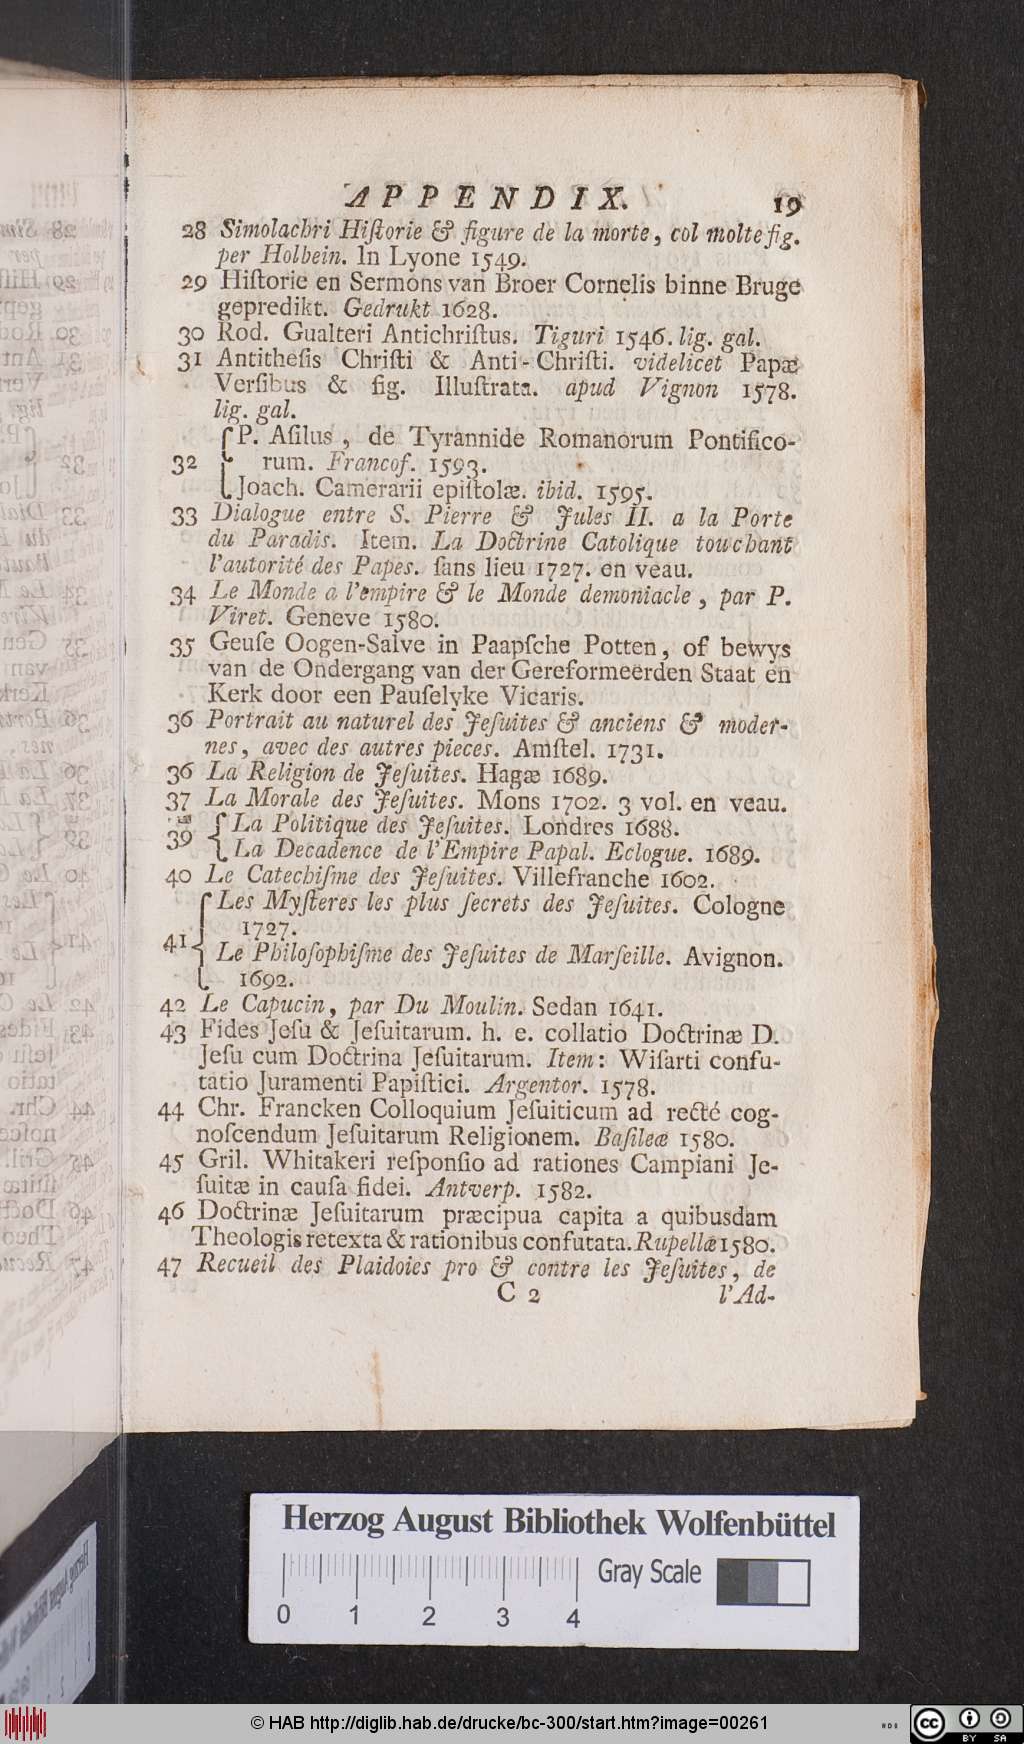 APPENDIX. 19
28 Simolachri Hiſtorie & figure de la morte, col molte fig.
per Holbein. In Lyone 1549.
29 Hiſtorie en Sermons van Broer Cornelis binne Bruge
gepredikt. Gedrukt 1628.
30 Rod. Gualteri Antichriſtus. Tiguri 1546. lig. gal.
31 Antitheſis Chriſti & Anti-Chriſti. videlicet Papæ
Verſibus & fig. Illuſtrata. apud Vignon 1578.
lig. gal.
P. Aſilus, de Tyrannide Romanorum Pontifico-
32 rum. Francof. 1593.
Joach. Camerarii epiſtolæ. ibid. 1595.
33 Dialogue entre S. Pierre & Jules II. a la Porte
du Paradis. Item. La Doctrine Catolique touchant
l'autorité des Papes. ſans lieu 1727. en veau.
34 Le Monde a l'empire & le Monde demoniacle, par P.
Viret. Geneve 1580.
35 Geuſe Oogen-Salve in Paapſche Potten, of bewys
van de Ondergang van der Gereformeerden Staat en
Kerk door een Pauſelyke Vicaris.
36 Portrait au naturel des Jeſuites & anciens & moder-
nes, avec des autres pieces. Amſtel. 1731.
36 La Religion de Jeſuites. Hagæ 1689.
37 La Morale des Jeſuites. Mons 1702. 3 vol. en veau.
39 La Politique des Jeſuites. Londres 1688.
La Decadence de l'Empire Papal. Eclogue. 1689.
40 Le Catechiſme des Jeſuites. Villefranche 1602.
Les Myſteres les plus ſecrets des Jeſuites. Cologne
1727.
41 Le Philoſophiſme des Jeſuites de Marſeille. Avignon.
1692.
42 Le Capucin, par Du Moulin. Sedan 1641.
43 Fides Jeſu & Jeſuitarum. h. e. collatio Doctrinæ D.
Jeſu cum Doctrina Jeſuitarum. Item: Wiſarti confu-
tatio Juramenti Papiſtici. Argentor. 1578.
44 Chr. Francken Colloquium Jeſuiticum ad recté cog-
noſcendum Jeſuitarum Religionem. Baſileæ 1580.
45 Gril. Whitakeri reſponſio ad rationes Campiani Je-
ſuitæ in cauſa fidei. Antverp. 1582.
46 Doctrinæ Jeſuitarum præcipua capita a quibusdam
Theologis retexta & rationibus confutata. Rupellæ 1580.
47 Recueil des Plaidoies pro & contre les Jeſuites, de
C 2 l'Ad-
Herzog August Bibliothek Wolfenbüttel
Gray Scale
0 1 2 3 4
© HAB http://diglib.hab.de/drucke/bc-300/start.htm?image=00261
cc BY SA